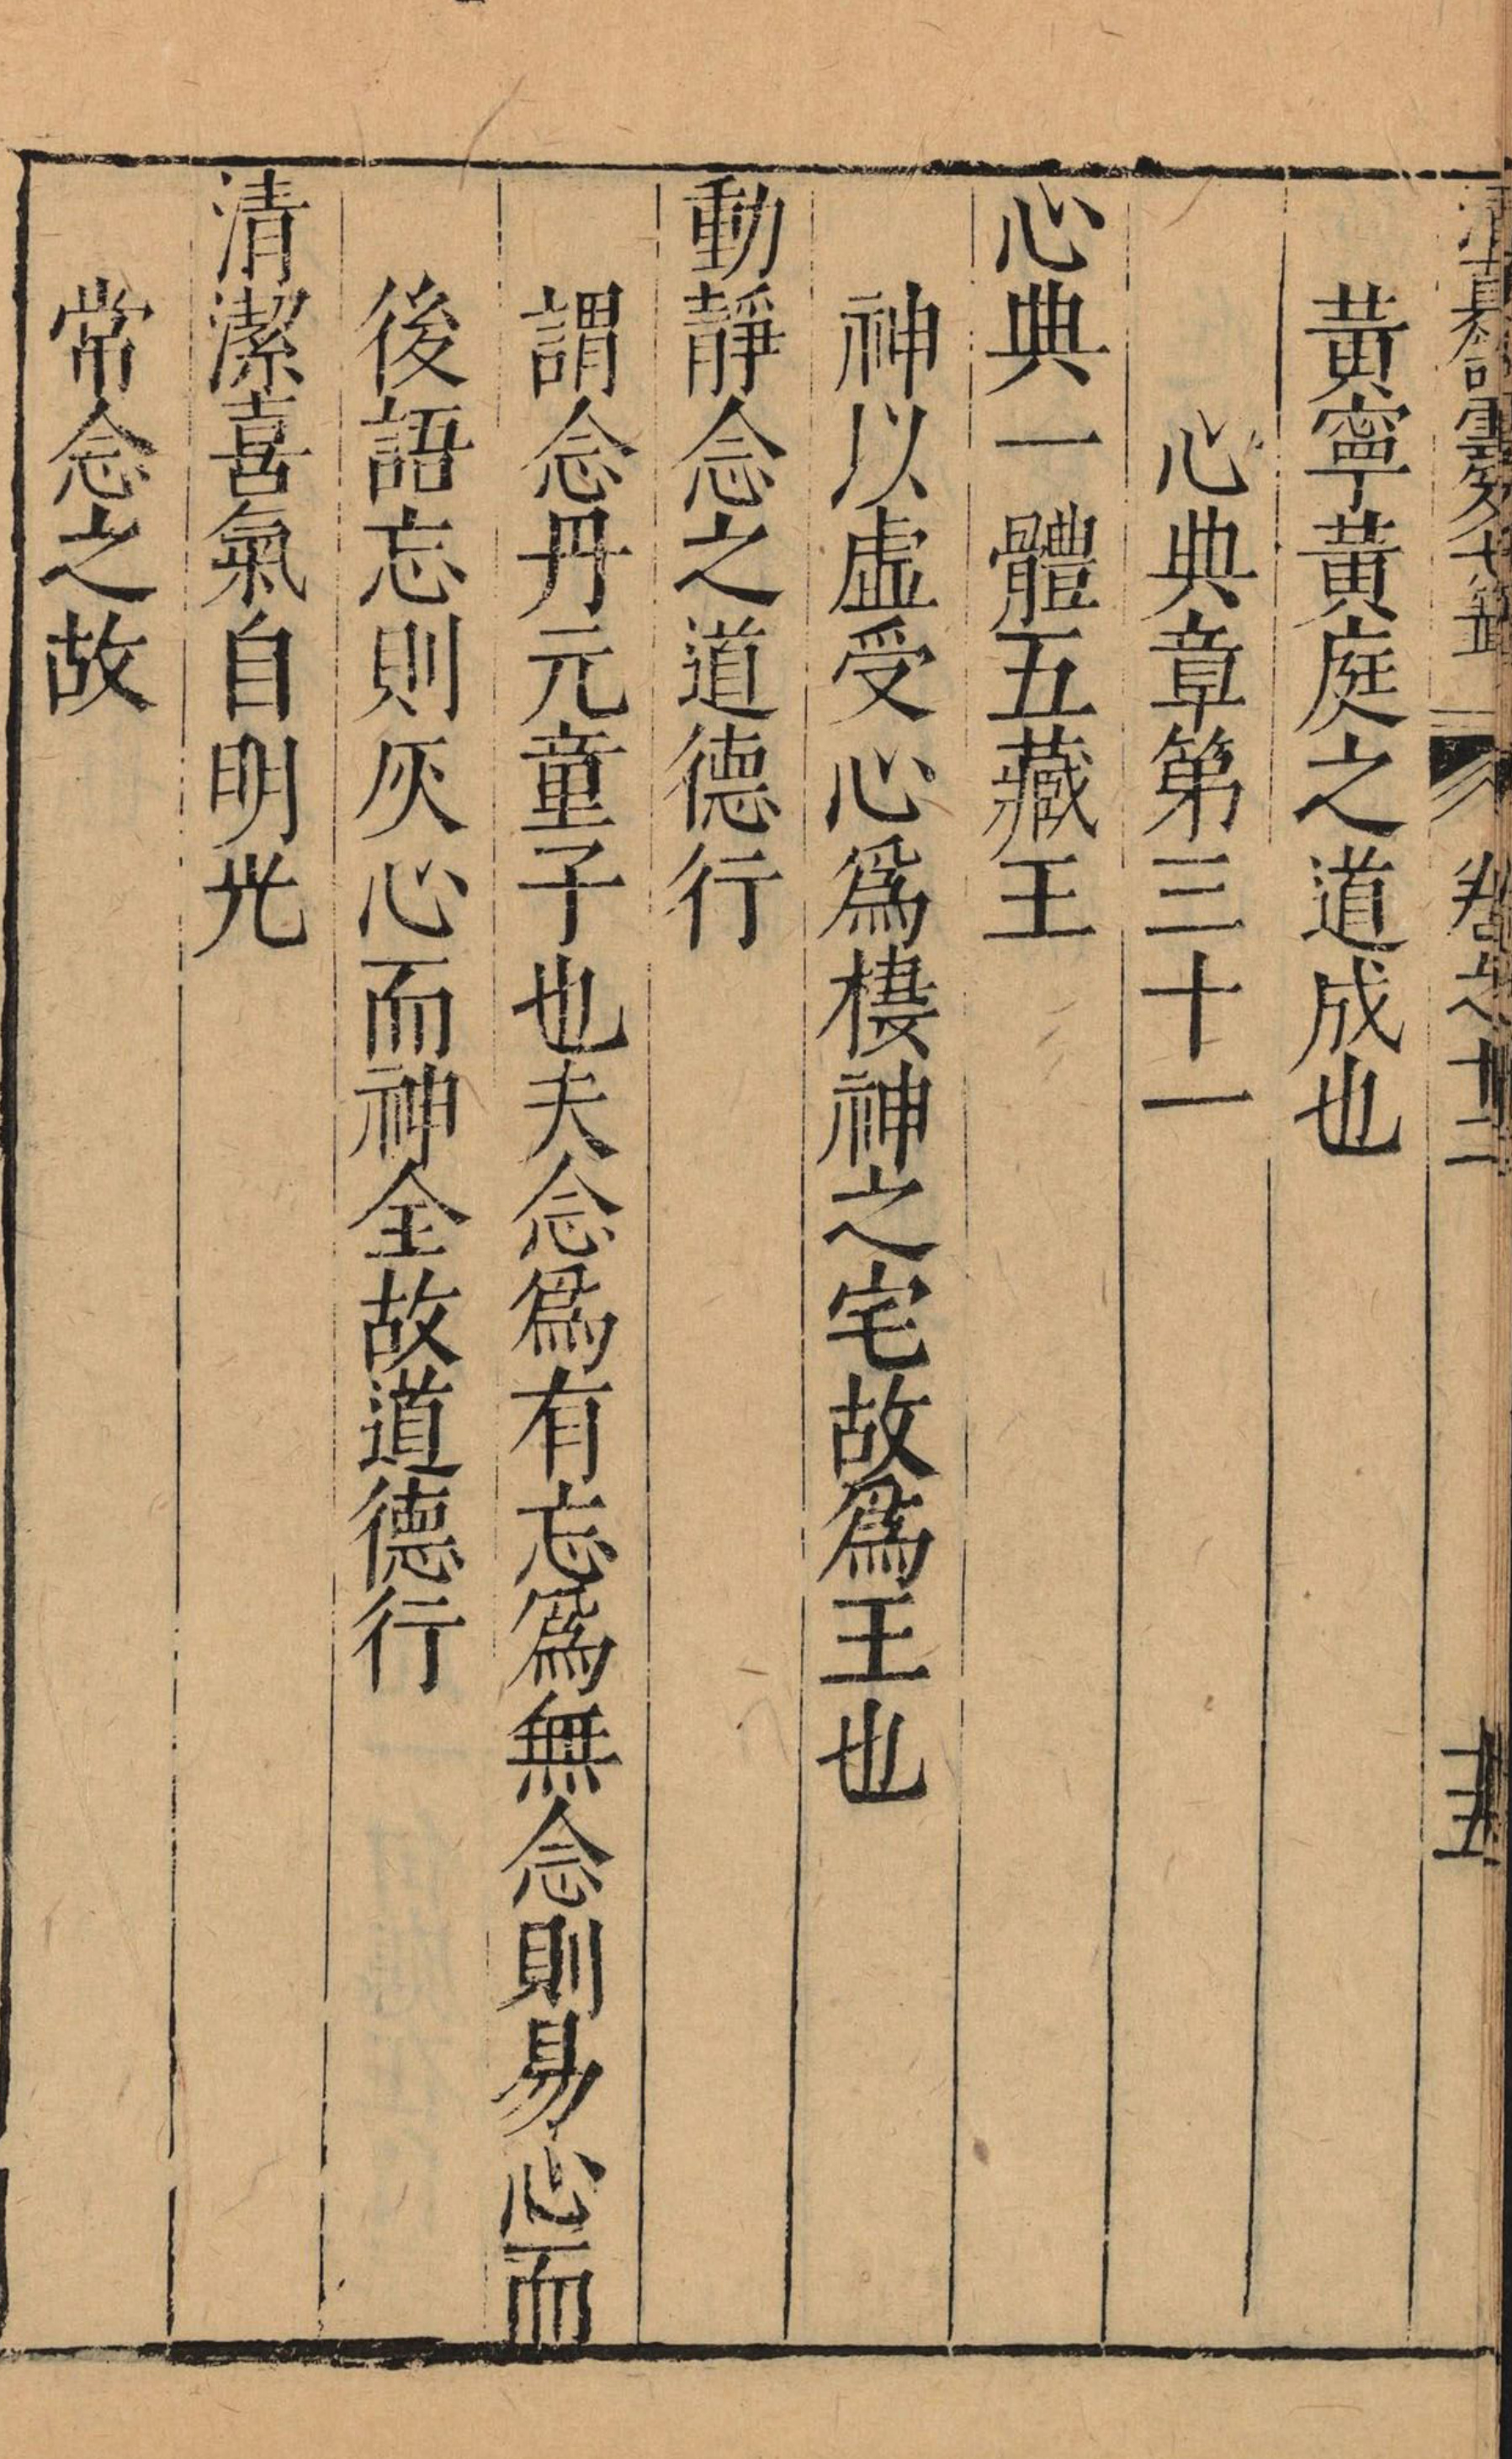 雲笈七籤 卷之十二
黃寧黃庭之道成也
心典章第三十一
心典一體五藏王
神以虛受心爲棲神之宅故爲王也
動靜念之道德行
謂念丹元童子也夫念爲有忘爲無念則易心而
後語忘則灰心而神全故道德行
清潔喜氣自明光
常念之故